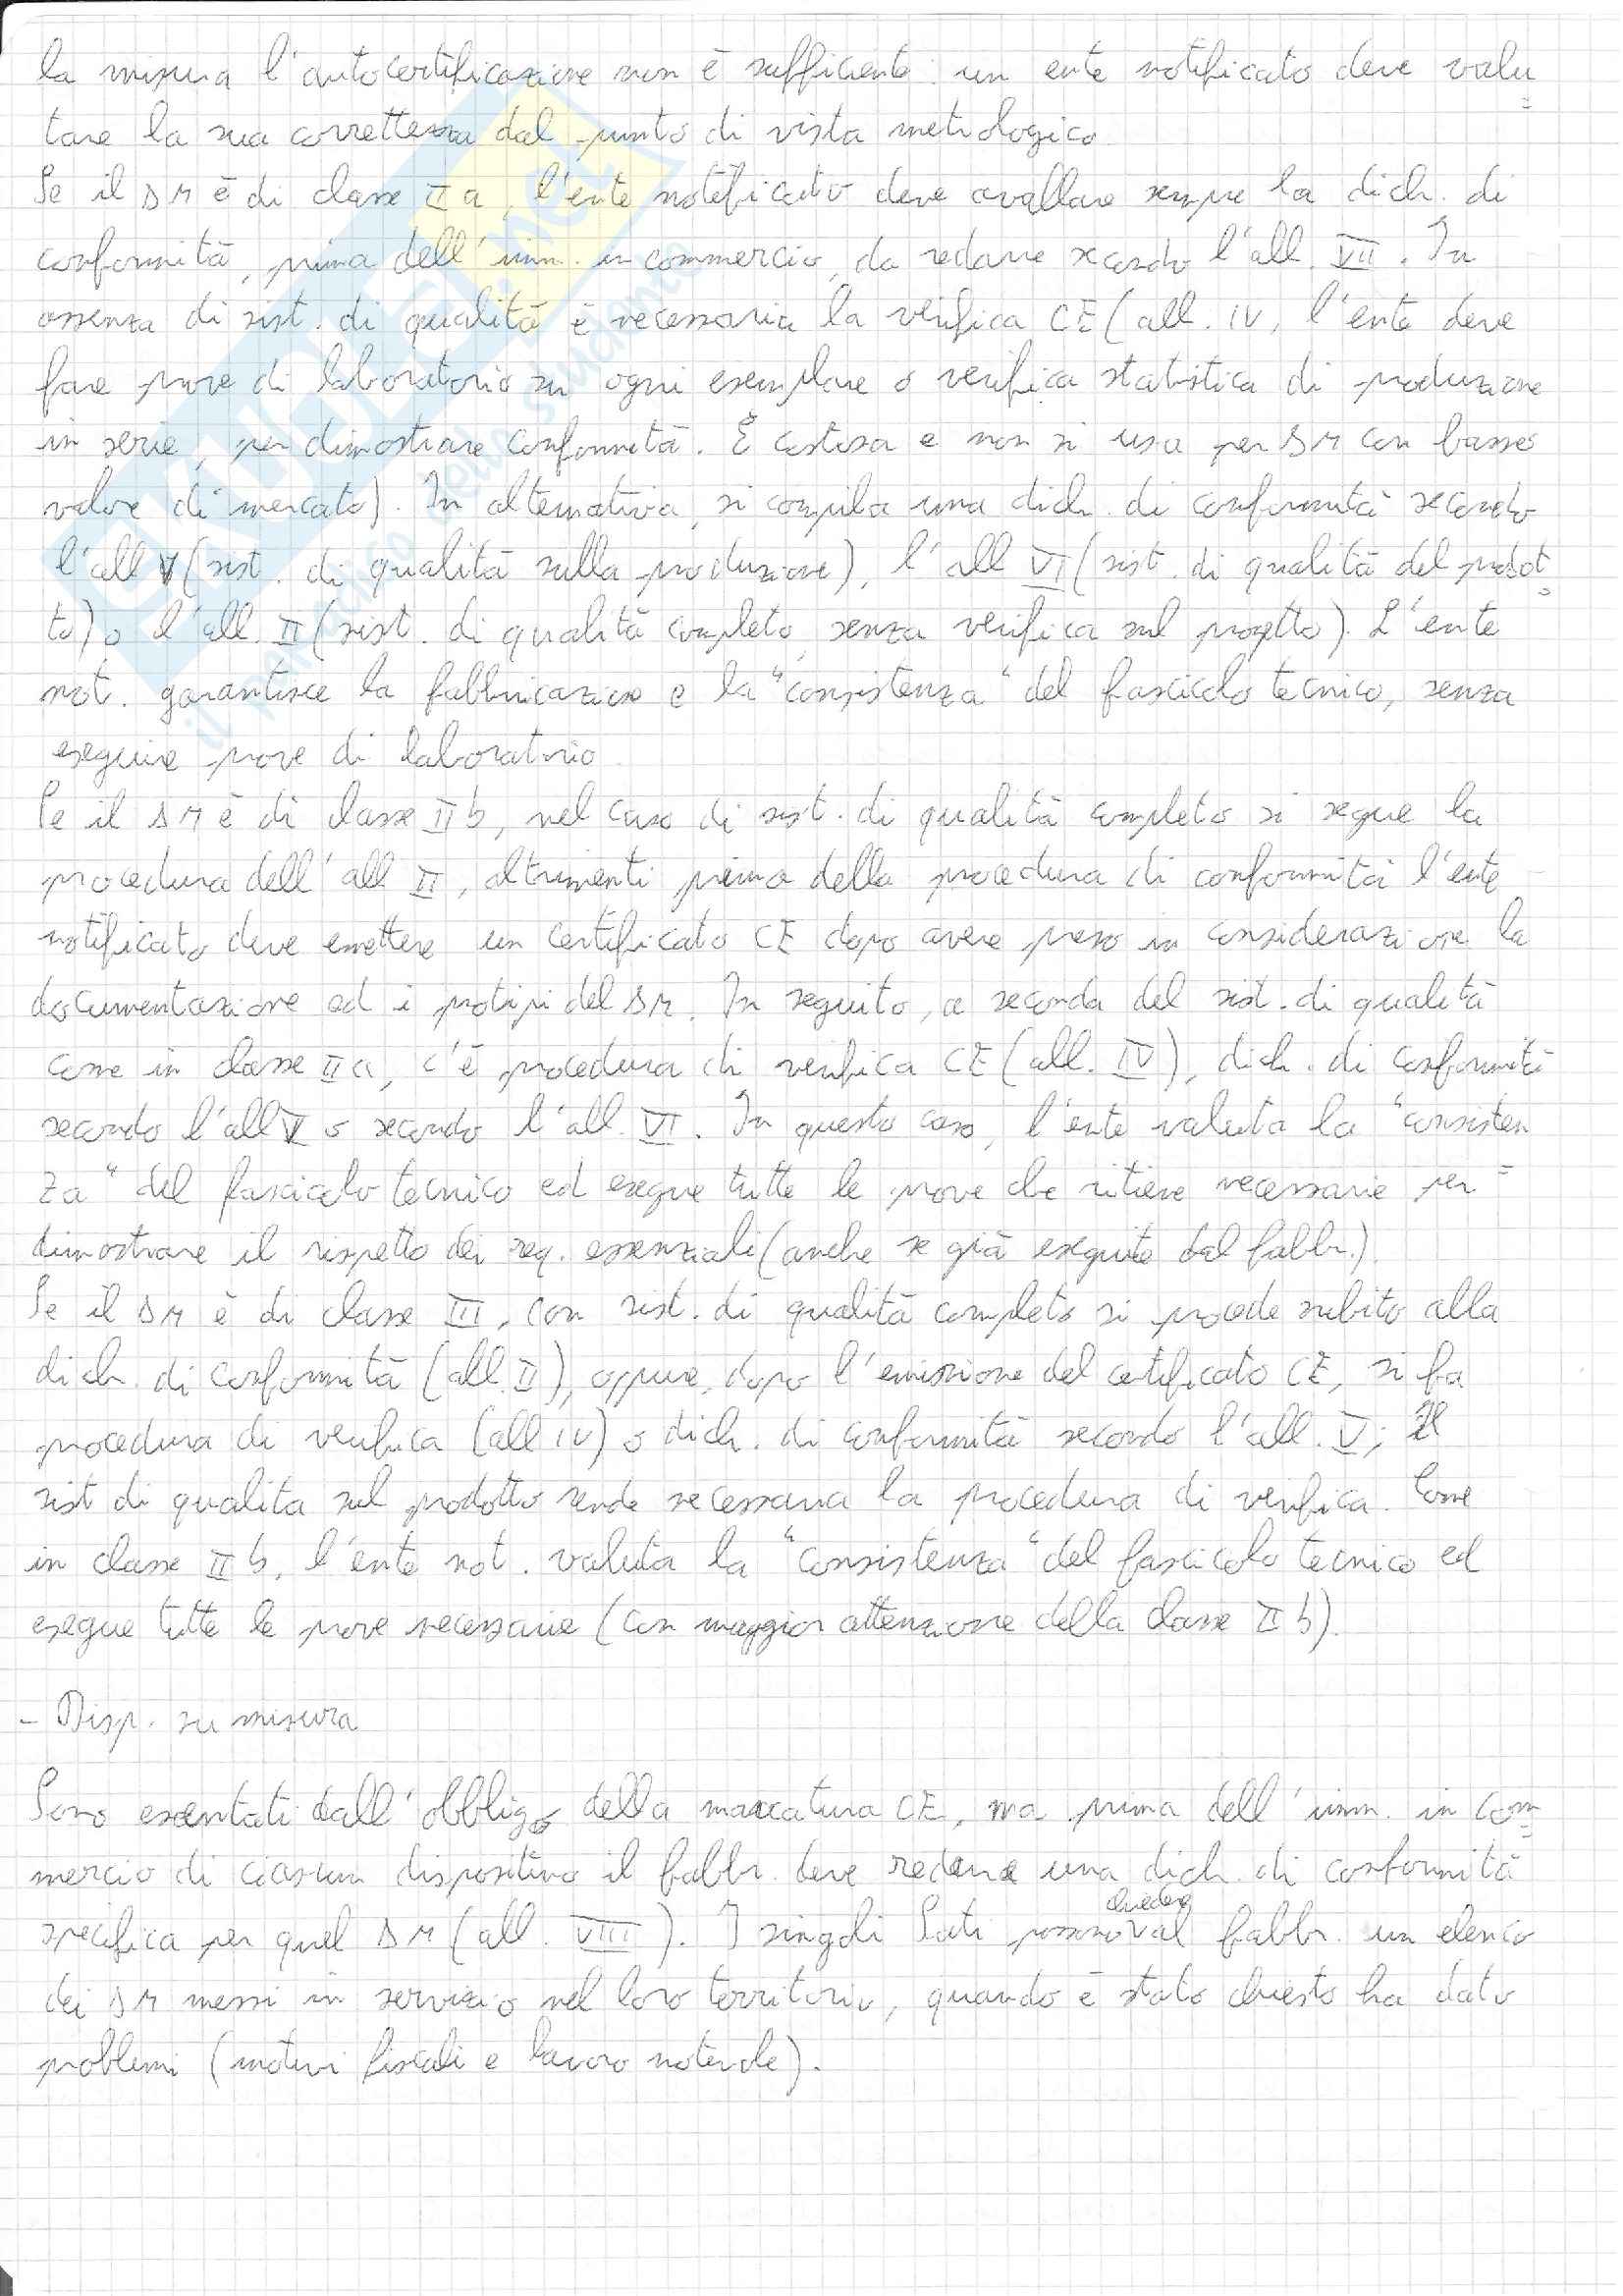 la misura l'autocertificazione non è sufficiente: un ente notificato deve valu=
tare la sua correttezza dal punto di vista metrologico.
Se il DM è di classe IIa, l'ente notificato deve avallare sempre la dich. di
conformità, prima dell'imm. in commercio, da redarre secondo l'all. VII. In
assenza di sist. di qualità è necessaria la verifica CE (all. IV, l'ente deve
fare prove di laboratorio su ogni esemplare o verifica statistica di produzione
in serie, per dimostrare conformità. È costosa e non si usa per DM con basso
valore di mercato). In alternativa, si compila una dich. di conformità secondo
l'all V (sist. di qualità sulla produzione), l'all VI (sist. di qualità del prodot=
to) o l'all. II (sist. di qualità completo, senza verifica sul progetto). L'ente
not. garantisce la fabbricazione e la "consistenza" del fascicolo tecnico, senza
eseguire prove di laboratorio.
Se il DM è di classe IIb, nel caso di sist. di qualità completo si segue la
procedura dell'all II, altrimenti prima della procedura di conformità l'ente
notificato deve emettere un certificato CE dopo avere preso in considerazione la
documentazione ed i protipi del DM. In seguito, a seconda del sist. di qualità
come in classe IIa, c'è procedura di verifica CE (all. IV), dich. di conformità
secondo l'all V o secondo l'all. VI. In questo caso, l'ente valuta la "consisten=
za" del fascicolo tecnico ed esegue tutte le prove che ritiene necessarie per
dimostrare il rispetto dei req. essenziali (anche se già eseguite dal fabbr.).
Se il DM è di classe III, con sist. di qualità completo si procede subito alla
dich. di conformità (all. II), oppure, dopo l'emissione del certificato CE, si fa
procedura di verifica (all IV) o dich. di conformità secondo l'all. V; il
sist di qualita sul prodotto rende necessaria la procedura di verifica. Come
in classe IIb, l'ente not. valuta la "consistenza" del fascicolo tecnico ed
esegue tutte le prove necessarie (con maggior attenzione della classe IIb).
- Disp. su misura
Sono esentati dall'obbligo della marcatura CE, ma prima dell'imm. in com=
mercio di ciascun dispositivo il fabbr. deve redarre una dich. di conformità
specifica per quel DM (all. VIII). I singoli Stati possono chiedere al fabbr. un elenco
dei DM messi in servizio nel loro territorio, quando è stato chiesto ha dato
problemi (motivi fiscali e lavoro notevole).